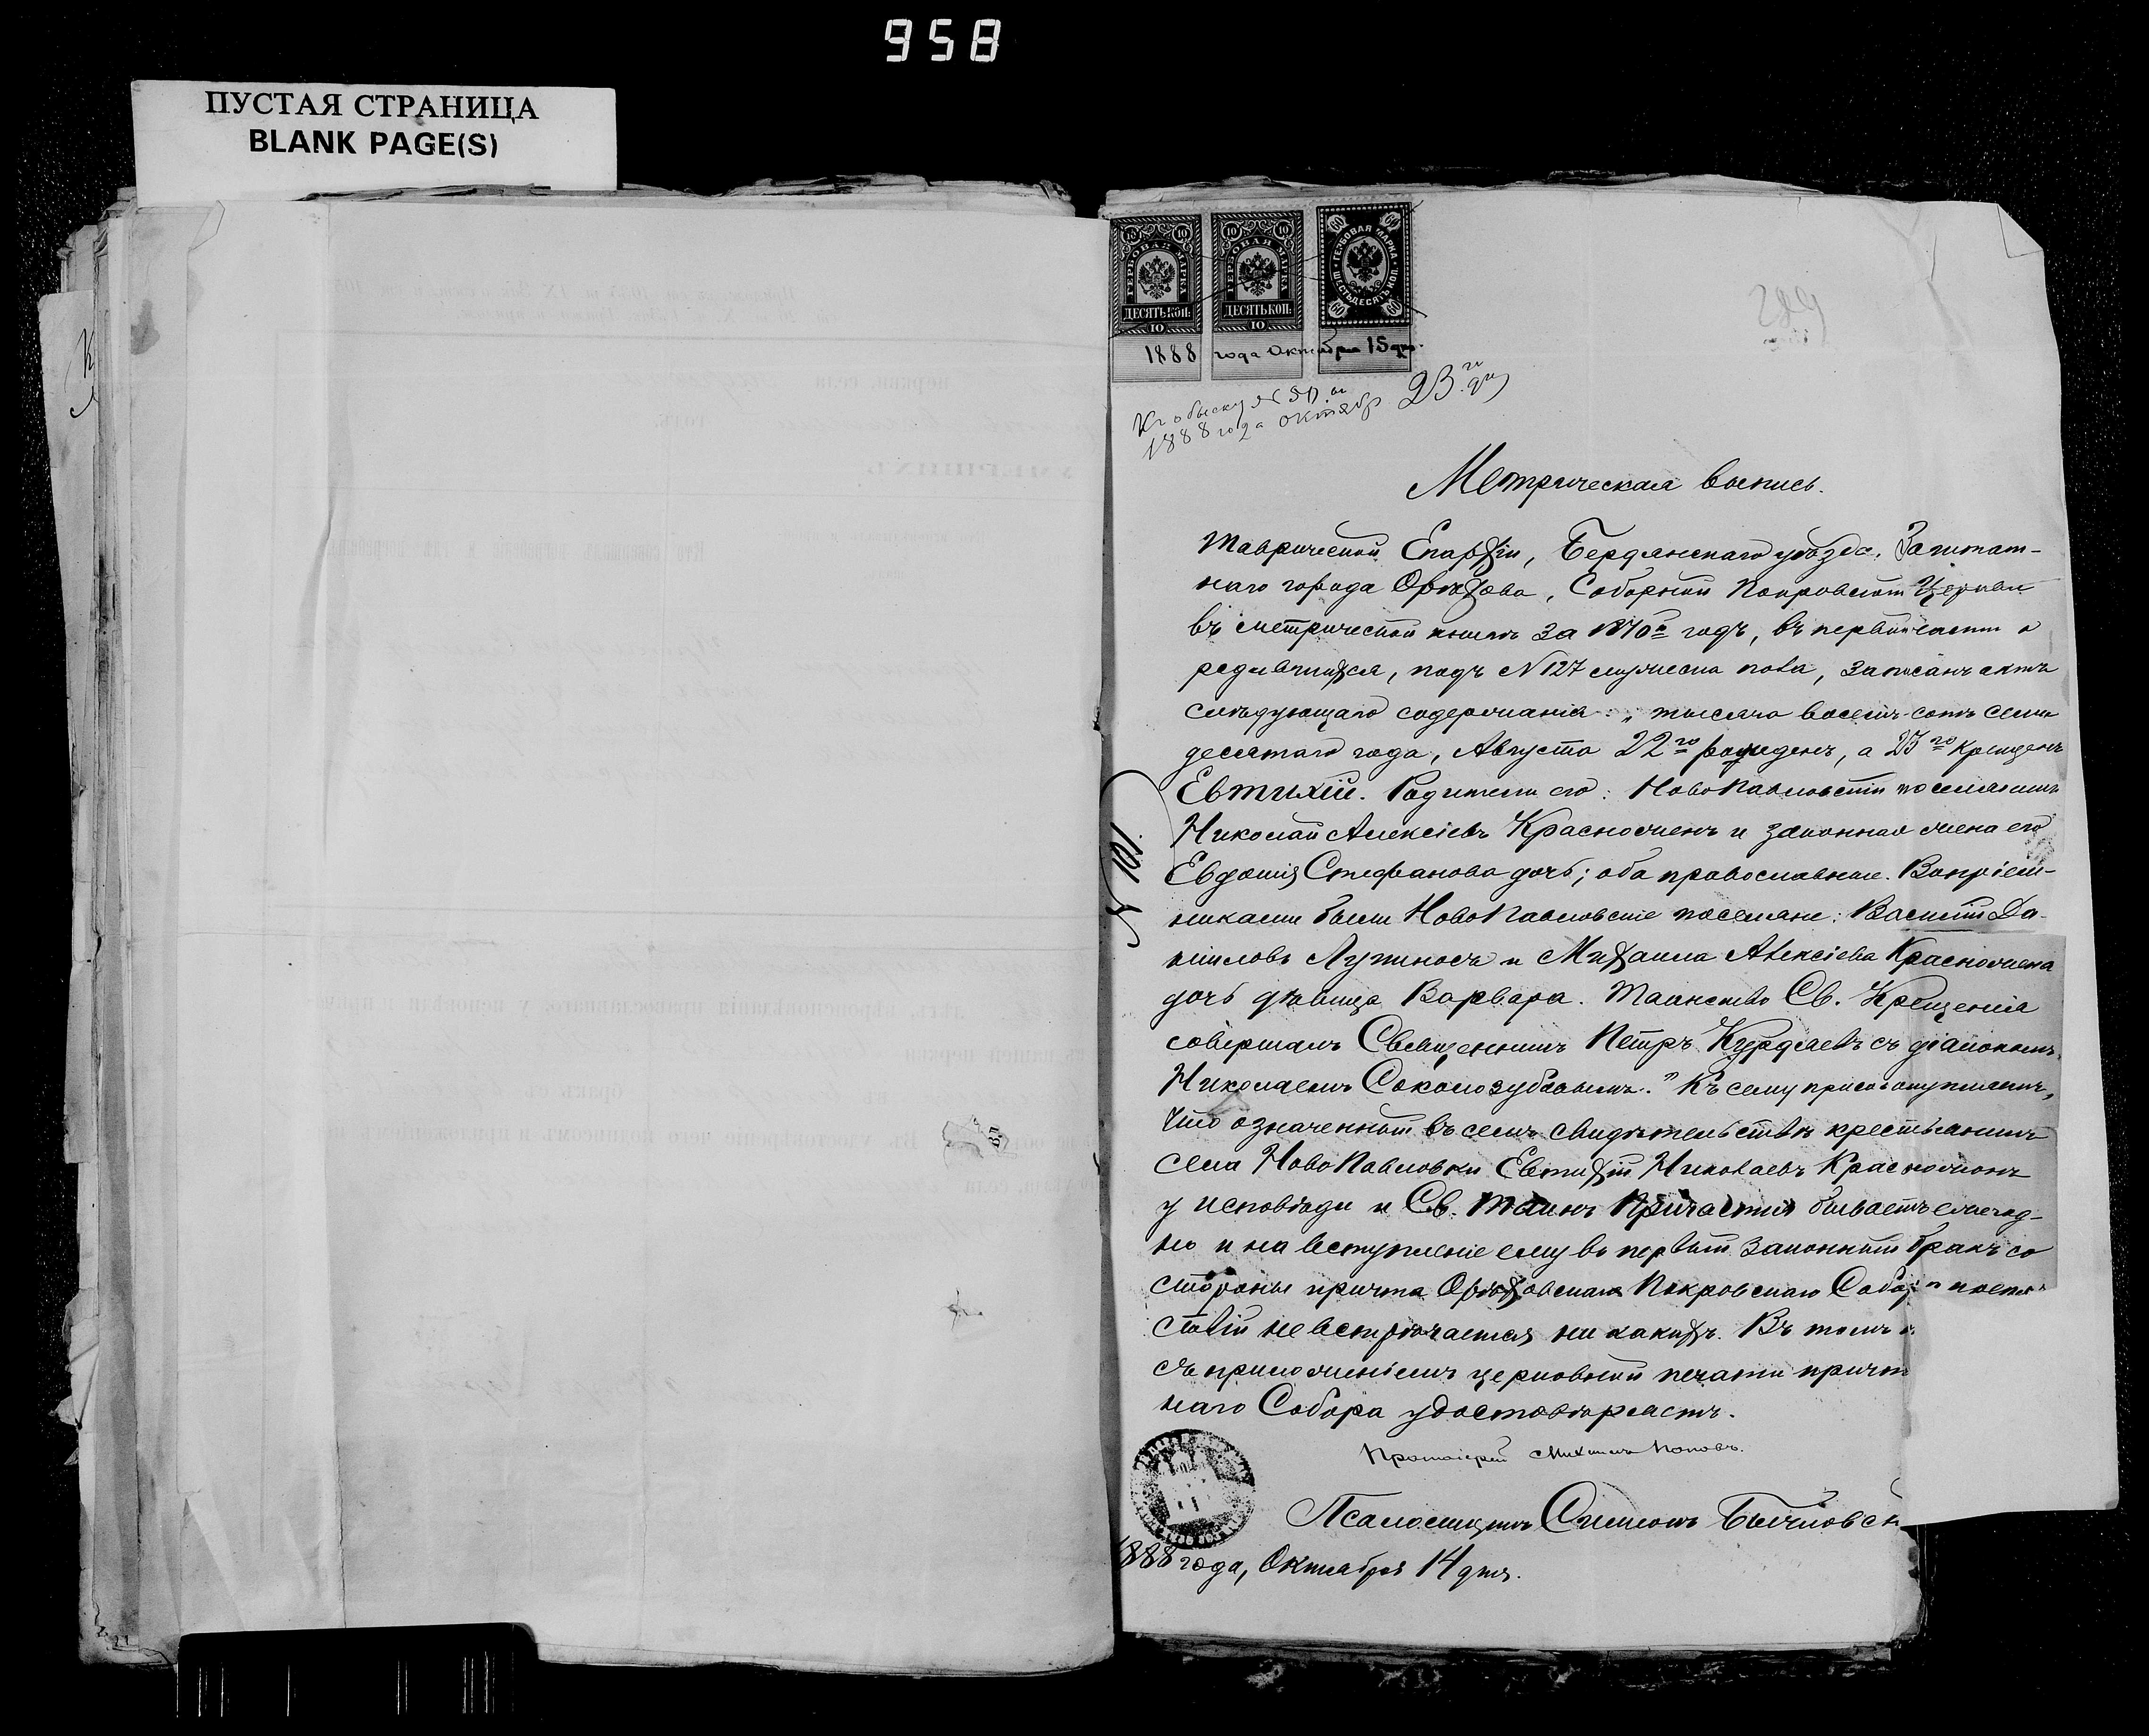 958
ПУСТАЯ СТРАНИЦА
BLANK PAGE(S)
10 10
10 10
60 60
ГЕРБОВАЯ МАРКА
ГЕРБОВАЯ МАРКА
ГЕРБОВАЯ МАРКА ШЕСТЬДЕСЯТЪ КОП.
ДЕСЯТЬ КОП.
ДЕСЯТЬ КОП.
10
10
60 60
1888 года Октября 15 дня.
289
Къ обыску
1888 года октябр 23.го дня
Метрическая выпись.
Таврической Епархіи, Бердянскаго уѣзда, Заштат-
наго города Орѣхова, Соборной Покровской Церкви
въ метрической книгѣ за 1870й годъ, въ первой части о
родившихся, подъ N 127 мужеска пола, записанъ актъ
слѣдующаго содержанія: „тысяча восемь-сотъ семи
десятаго года, Августа 22го рожденъ, а 23го крещенъ
Евтихій. Родители его: НовоПавловскій поселянинъ
Николай Алексіевъ Красножонъ и законная жена его
Евдокія Стефанова дочь; оба православные. Воспріем-
никами были НовоПавловскіе поселяне: Василій Да-
ниловъ Лупиносъ и Михаила Алексіева Красножона
дочь дѣвица Варвара. Таинство Св. Крещенія
совершалъ Священникъ Петръ Курдіаевъ съ діакономъ
Николаемъ Соколозубовымъ.” Къ сему присовокупляемъ,
что означенный въ семъ свидѣтельствѣ крестьянинъ
села НовоПавловки Евтихій Николаевъ Красножонъ
у исповѣди и Св. Таинъ Причастія бываетъ ежегод-
но и на вступленіе ему въ первый законный бракъ со
стороны причта Орѣховскаго Покровскаго Собора
ствій не встрѣчается ни какихъ. Въ томъ
съ приложеніемъ церковной печати причт
наго Собора удостовѣряетъ.
Протоіерей Михаилъ Поповъ.
Псаломщикъ Симеонъ Бычковск
1888 года, Октября 14 дня.